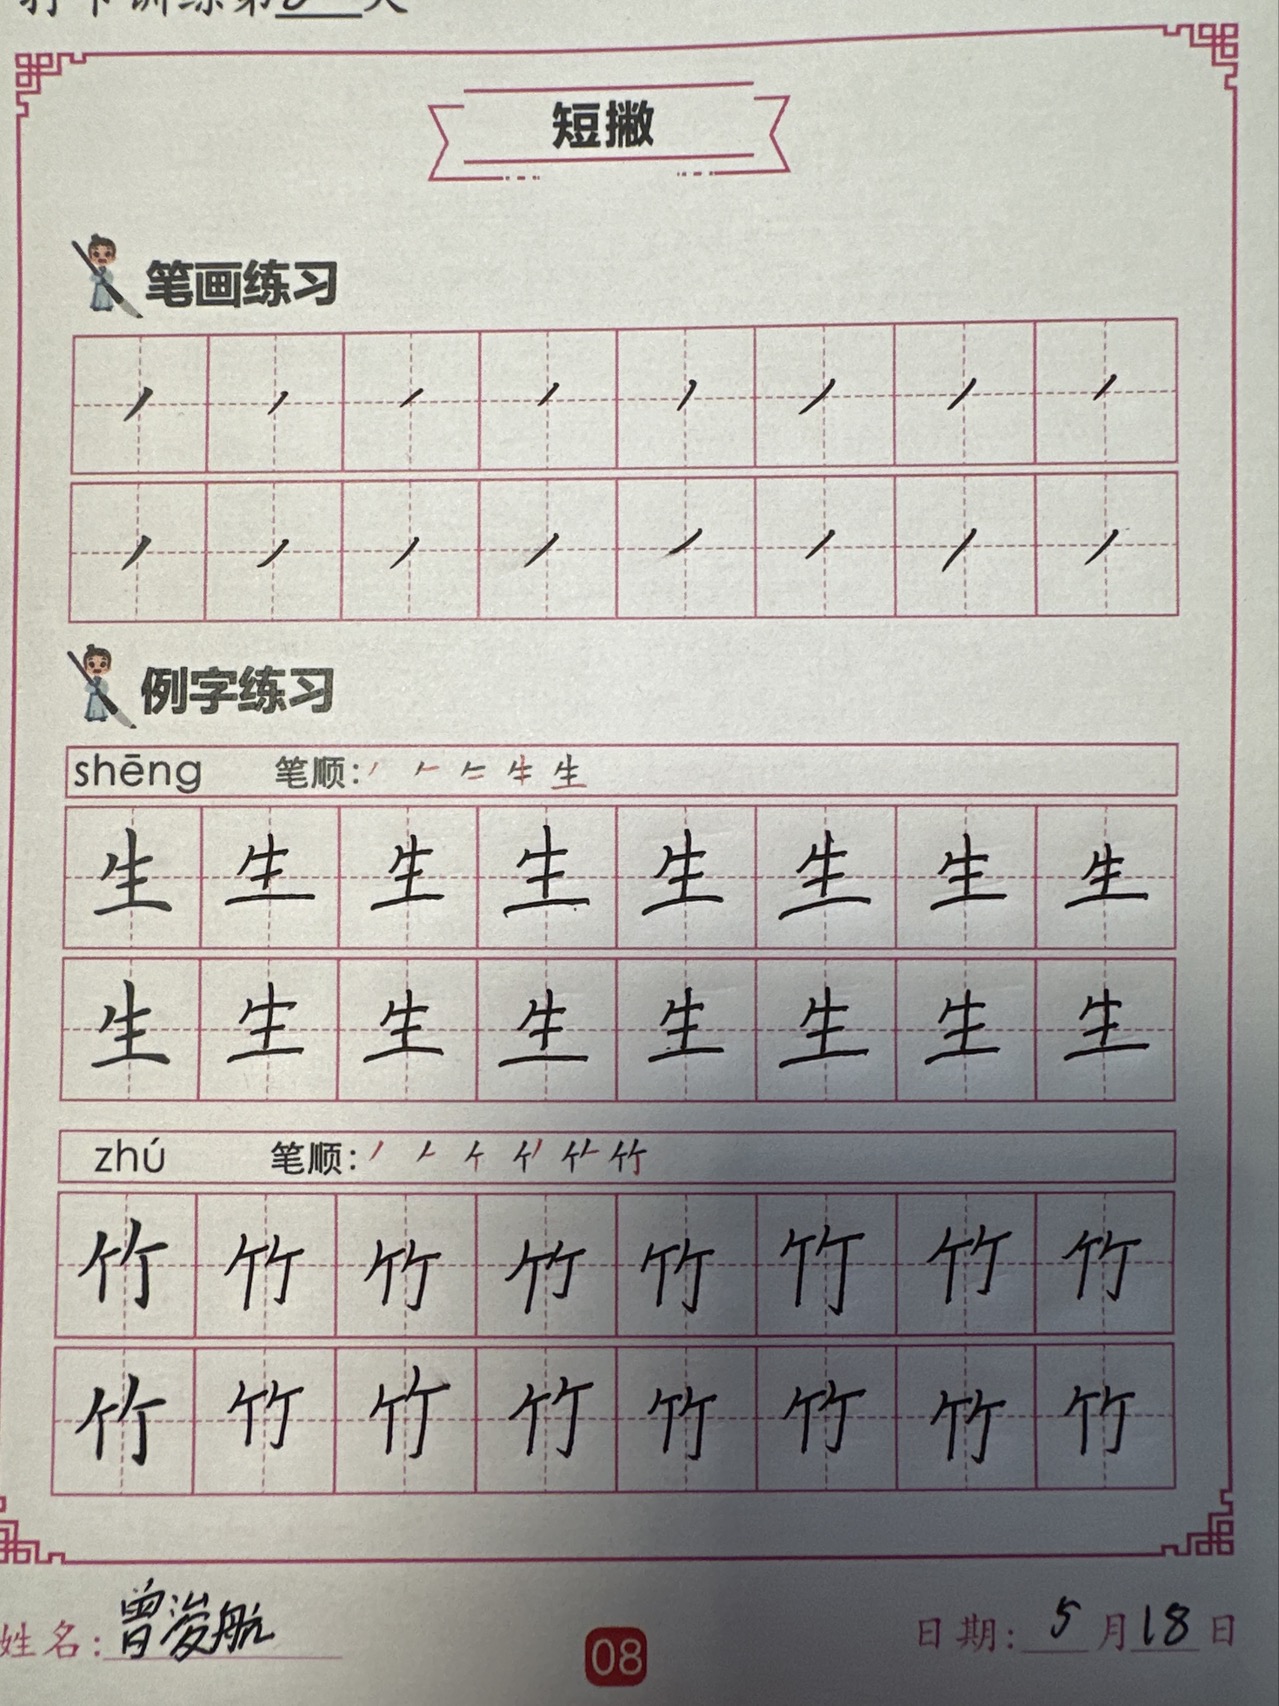 打卡训练第 天
短撇
笔画练习
丿 丿 丿 丿 丿 丿 丿 丿
丿 丿 丿 丿 丿 丿 丿 丿
例字练习
shēng 笔顺: 生
生 生 生 生 生 生 生 生
生 生 生 生 生 生 生 生
zhú 笔顺: 竹
竹 竹 竹 竹 竹 竹 竹 竹
竹 竹 竹 竹 竹 竹 竹 竹
姓名: 曾浚航 08 日期: 5 月 18 日